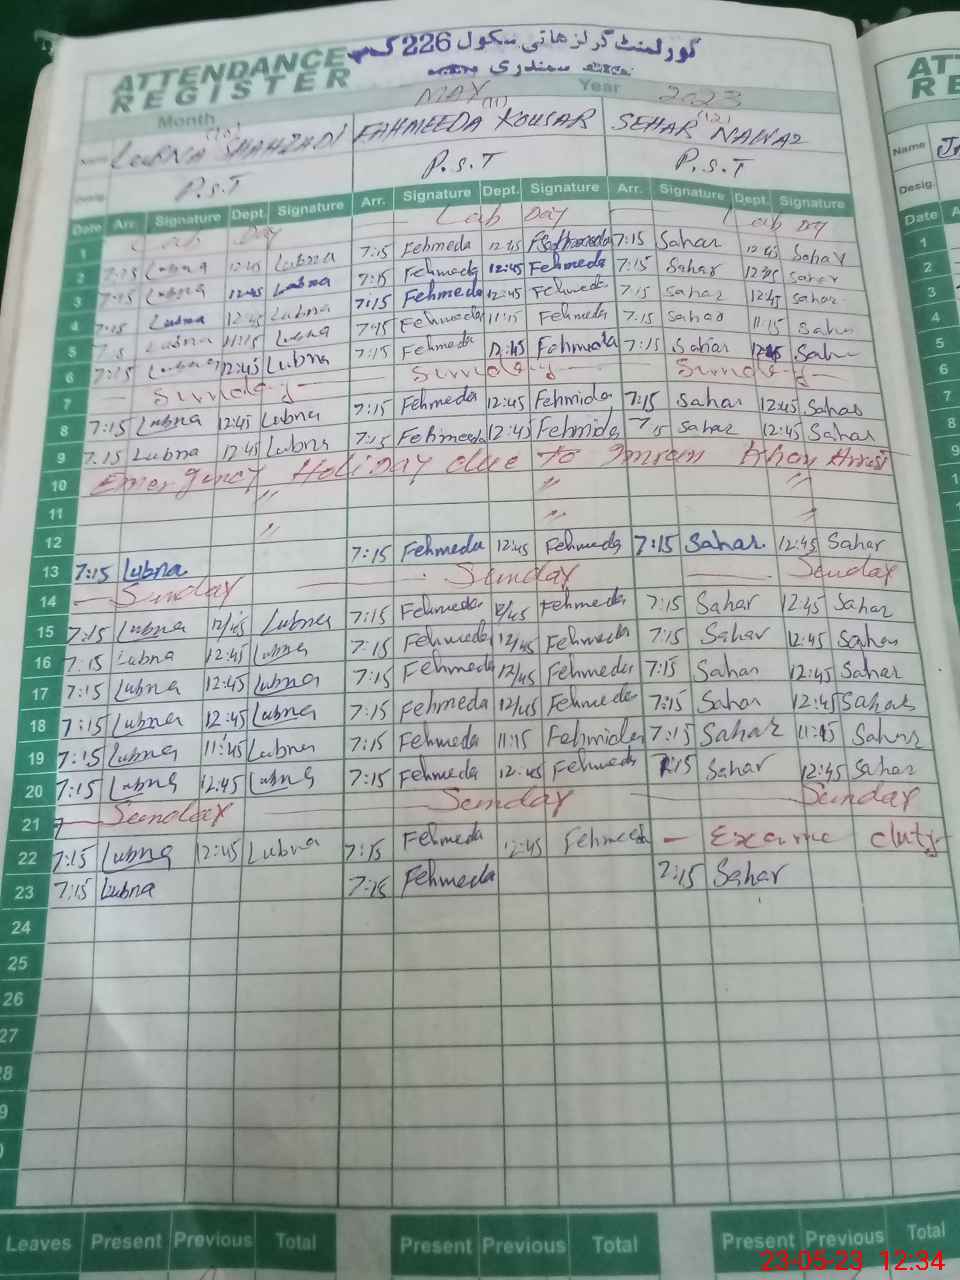 گورنمنٹ گرلز ہائی سکول 226 گ ب
سمندری
ATTENDANCE
REGISTER
Month MAY Year 2023
(10) (11) (12)
Name LUBNA SHAHZADI FAHMEEDA KOUSAR SEHAR NAWAZ
Desig. P.S.T P.S.T P.S.T
Date Arr. Signature Dept. Signature Arr. Signature Dept. Signature Arr. Signature Dept. Signature
1 Lab Day Lab Day Lab Day
2 7:15 Lubna 12:45 Lubna 7:15 Fehmeda 12:45 Fehmeda 7:15 Sahar 12:45 Sahar
3 7:15 Lubna 12:45 Lubna 7:15 Fehmeda 12:45 Fehmeda 7:15 Sahar 12:45 Sahar
4 7:15 Lubna 12:45 Lubna 7:15 Fehmeda 12:45 Fehmeda 7:15 Sahar 12:45 Sahar
5 7:15 Lubna 11:15 Lubna 7:15 Fehmeda 11:15 Fehmeda 7:15 Sahar 11:15 Saha
6 7:15 Lubna 12:45 Lubna 7:15 Fehmeda 12:45 Fehmida 7:15 Sahar 12:45 Sah
7 Sunday Sunday Sunday
8 7:15 Lubna 12:45 Lubna 7:15 Fehmeda 12:45 Fehmida 7:15 Sahar 12:45 Sahar
9 7:15 Lubna 12:45 Lubna 7:15 Fehmeeda 12:45 Fehmida 7:15 Sahar 12:45 Sahar
10 Emergency Holiday due to Imran Khan Arrest
11 〃 〃 〃
12 〃 〃 〃
13 7:15 Lubna 7:15 Fehmeda 12:45 Fehmeda 7:15 Sahar 12:45 Sahar
14 Sunday Sunday Sunday
15 7:15 Lubna 12/45 Lubna 7:15 Fehmeda 12/45 Fehmeda 7:15 Sahar 12:45 Sahar
16 7:15 Lubna 12:45 Lubna 7:15 Fehmeda 12/45 Fehmeda 7:15 Sahar 12:45 Sahar
17 7:15 Lubna 12:45 Lubna 7:15 Fehmeda 12/45 Fehmeda 7:15 Sahar 12:45 Sahar
18 7:15 Lubna 12:45 Lubna 7:15 Fehmeda 12/45 Fehmeda 7:15 Sahar 12:45 Sahar
19 7:15 Lubna 11:45 Lubna 7:15 Fehmeda 11:15 Fehmida 7:15 Sahar 11:15 Sahar
20 7:15 Lubna 12:45 Lubna 7:15 Fehmeda 12:45 Fehmeda 7:15 Sahar 12:45 Sahar
21 Sunday Sunday Sunday
22 7:15 Lubna 12:45 Lubna 7:15 Fehmeda 12:45 Fehmeda duty
23 7:15 Lubna 7:15 Fehmeda 7:15 Sahar
24
25
26
27
Leaves Present Previous Total Present Previous Total Present Previous Total
AT
RE
Name
Desig.
Date A
1
2
3
4
5
6
7
8
9
10
23-05-23 12:34